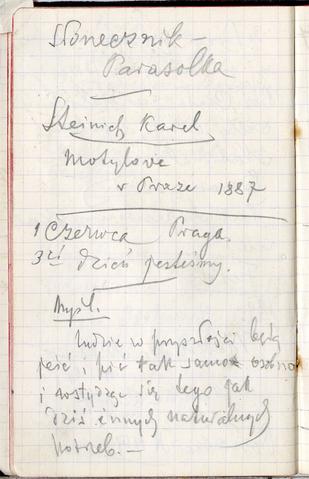 Słonecznik -
Parasolka
Steinich Karel
Motylove
v Praze 1887
1 Czerwca Praga.
3ci dzień jesteśmy.
Myśl.
Ludzie w przyszłości będą
jeść i pić tak samo osobno
i wstydząc się tego jak
dziś innych naturalnych
potrzeb. -